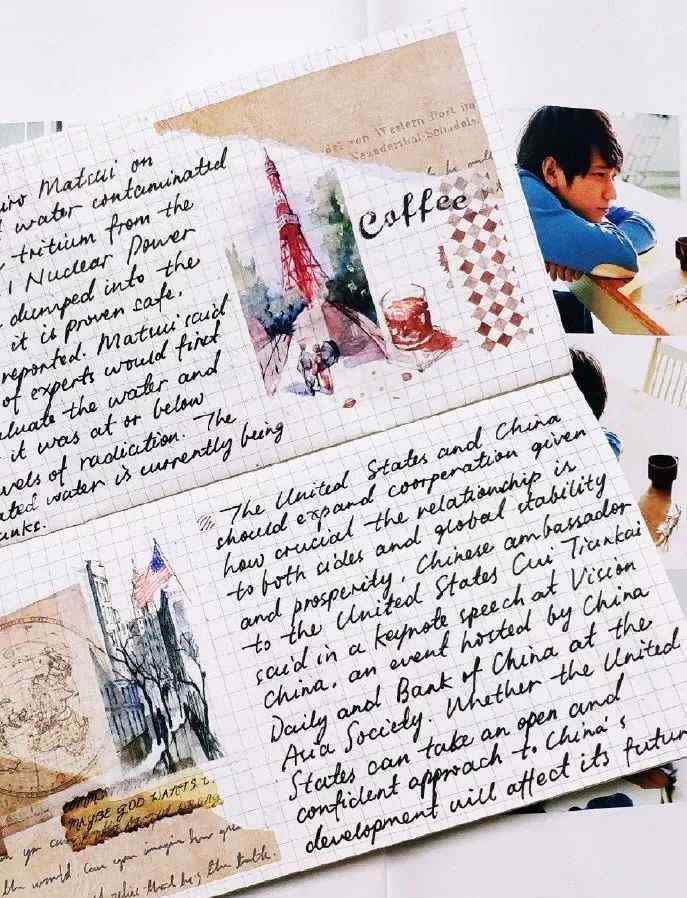 Matsui on
water contaminated
tritium from the
1 Nuclear Power
dumped into the
it is proven safe,
reported. Matsui said
of experts would first
the water and
it was at or below
of radiation. The
water is currently being
von Western Port in
Neanderthal-Schädels.
Coffee
The United States and China
should expand cooperation given
how crucial the relationship is
to both sides and global stability
and prosperity, Chinese ambassador
to the United States Cui Tiankai
said in a keynote speech at Vision
China, an event hosted by China
Daily and Bank of China at the
Asia Society. Whether the United
States can take an open and
confident approach to China's
development will affect its futur
MAYBE GOD WANTS
the world can you imagine how
the truth.